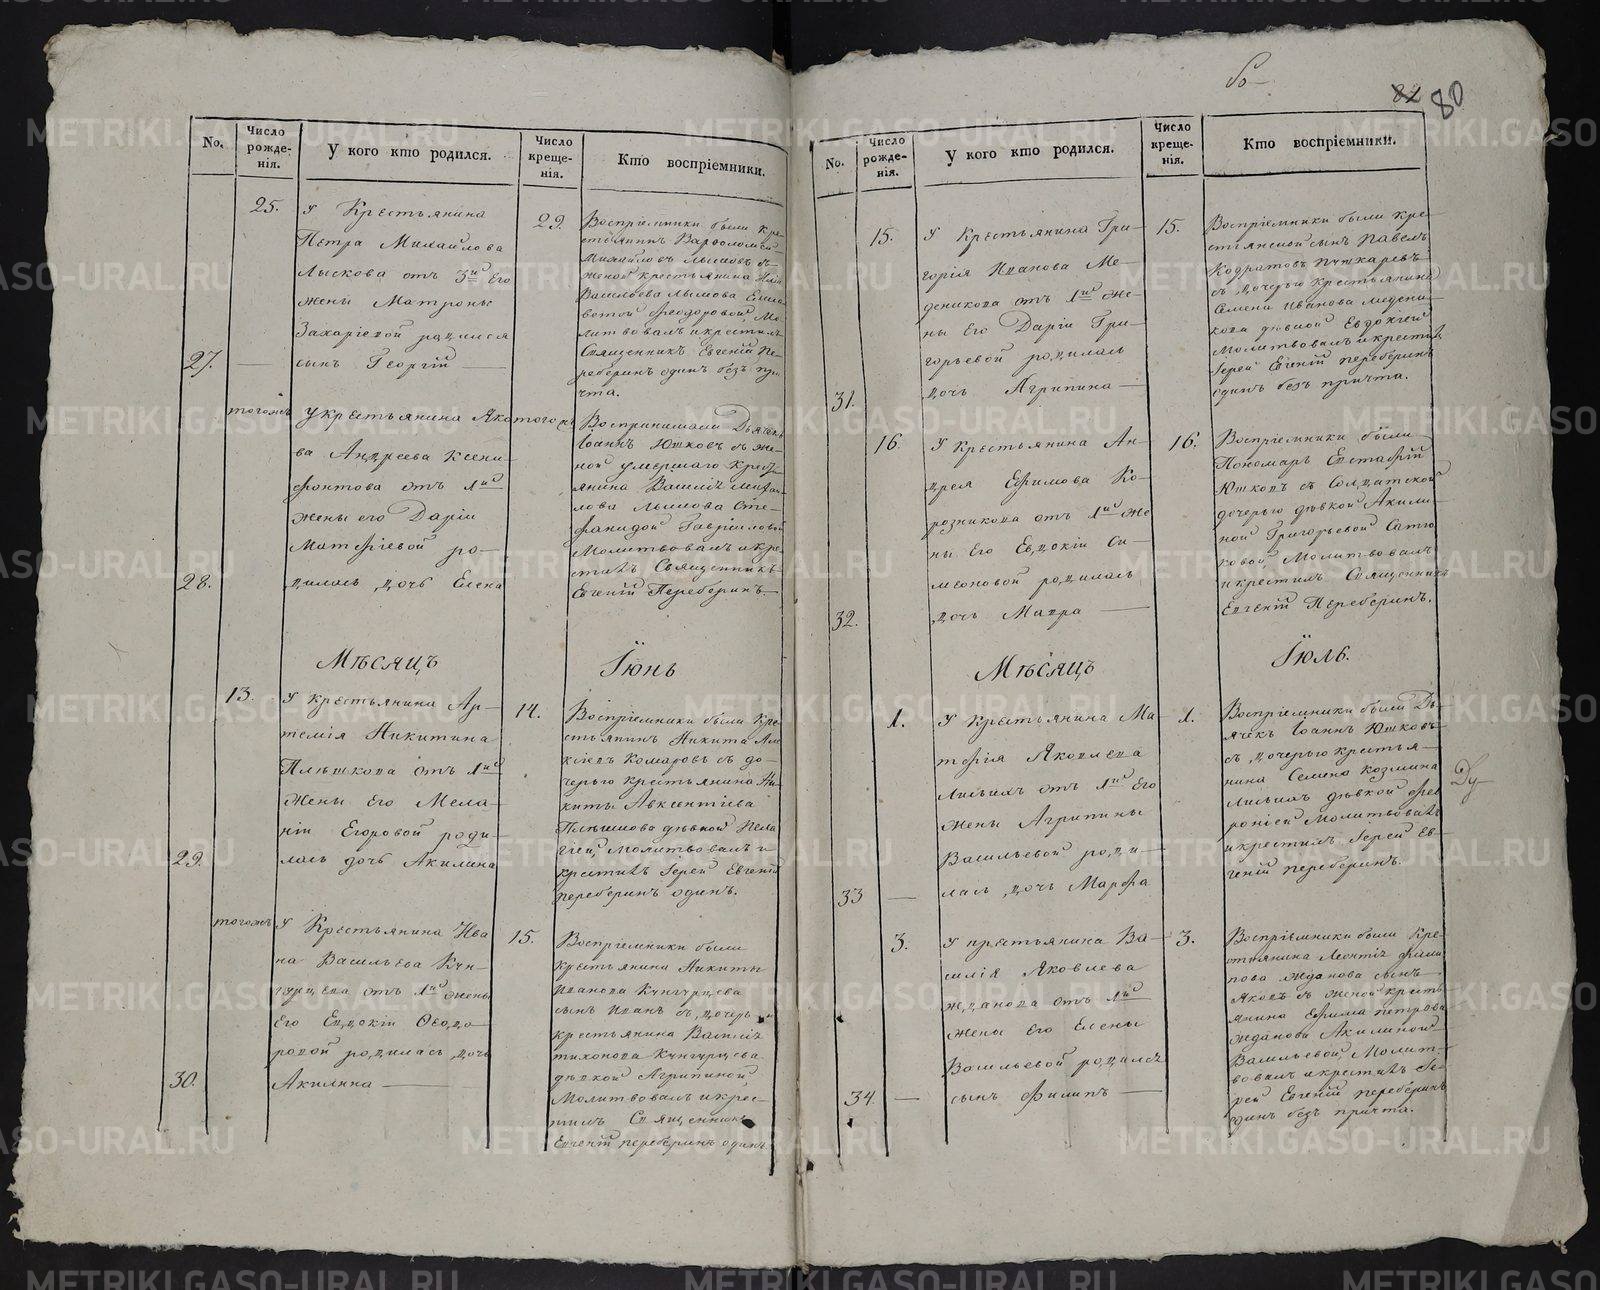 бо
82 80
No.
Число рожде-нія.
У кого кто родился.
Число креще-нія.
Кто воспріемники.
27.
25.
У Крестьянина
Петра Михайлова
Лыскова отъ 3й Его
жены Матроны
Захаріевой родился
сынъ Георгій
29.
Воспріемники были кре-
стьянинъ Варфоломей
Михайловъ Лысковъ съ
женой крестьянина
Васильева Лыскова
Феодоровой, Мо-
литвовалъ и крестилъ
Священникъ Евгеній Пе-
реберинъ одинъ безъ при-
чта.
28.
тогожъ
У крестьянина Яко-
ва Андреева Ксени-
фонтова отъ 1й
жены его Даріи
Матфіевой ро-
дилась дочь Елена
тогожъ
Воспринимали Дьячекъ
Іоаннъ Юшковъ съ же-
ной умершаго Крестья-
янина Василія
лова Лыскова Сте-
фанидой Гавріиловой
Молитвовалъ и кре-
стилъ Священникъ
Евгеній Переберинъ.
Мѣсяцъ Іюнь
29.
13.
У крестьянина Ар-
темія Никитина
Плѣшкова отъ 1й
жены Его Мела-
ніи Егоровой роди-
лась дочь Акилина
14.
Воспріемники были Кре-
стьянинъ Никита
Комаровъ съ до-
черью крестьянина Ни-
киты Авксентіева
Плѣшкова дѣвкой Пела-
гіей, Молитвовалъ и
крестилъ Іерей Евгеній
переберинъ одинъ.
30.
тогожъ
У Крестьянина Ива-
на Васильева Кун-
гурцева отъ 1й жены
Его Евдокіи Ѳеодо-
ровой родилась дочь
Акилина
15.
Воспріемники были
Крестьянина Никиты
Иванова Кунгурцева
сынъ Иванъ съ дочерью
крестьянина Василія
тихонова Кунгурцева
дѣвкой Агрипиной,
Молитвовалъ и крес-
тилъ Священникъ
Евгеній переберинъ одинъ
No.
Число рожде-нія.
У кого кто родился.
Число креще-нія.
Кто воспріемники.
31.
15.
У Крестьянина Гри-
горія Иванова Ме-
деникова отъ 1й же-
ны Его Даріи Гри-
горьевой родилась
дочь Агрипина
15.
Воспріемники были кре-
стьянской сынъ Павелъ
Кодратовъ Пушкаревъ
съ дочерью крестьянина
Семена Иванова Медени-
кова дѣвкой Евдокіей
Молитвовалъ и крестилъ
Іерей Евгеній переберинъ
одинъ безъ причта.
32.
16.
У Крестьянина Ан-
дрея Ефимова Ко-
розникова отъ 1й Же-
ны Его Евдокіи Си-
меоновой родилась
дочь Мавра
16.
Воспріемники были
Пономарь Евстафій
Юшковъ съ Солдатской
дочерью дѣвкой Акили-
ной Григорьевой
ковой, Молитвовалъ
и крестилъ Священникъ
Евгеній Переберинъ.
Мѣсяцъ Іюль.
33
1.
У Крестьянина Ма-
тфія Яковлева
Лисьихъ отъ 1й Его
жены Агрипины
Васильевой роди-
лась дочь Марфа
1.
Воспріемники были Дь-
ячекъ Іоаннъ Юшковъ
съ дочерью крестья-
нина Семена Козмина
Лисьихъ дѣвкой Фев
роніей Молитвовалъ
и крестилъ Іерей Ев-
геній переберинъ.
34
3.
У крестьянина Ва-
силія Яковлева
жданова отъ 1й
жены Его Елены
Васильевой родился
сынъ Филипъ
3.
Воспріемники были Кре-
стьянина Леонтія Фили-
пова Жданова сынъ
Яковъ съ женой кресть-
янина Ефима петрова
Жданова Акилиной
Васильевой, Молит-
вовалъ и крестилъ Іе-
рей Евгеній переберинъ
одинъ безъ причта.
METRIKI.GASO-URAL.RU